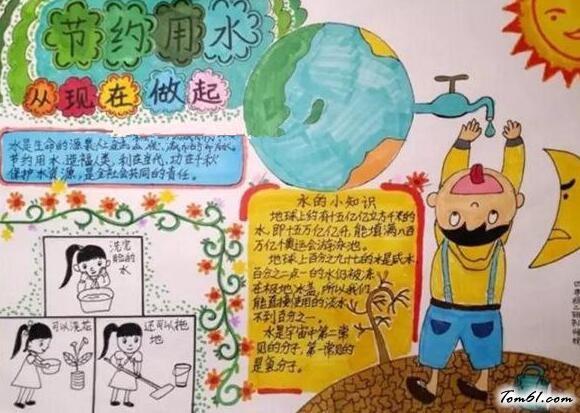 节约用水
从现在做起
水是生命的源泉
节约用水,造福人类,利在当代,功在千秋
保护水资源,是全社会共同的责任。
水的小知识
地球上约有十五亿亿立方千米的
水,即十五万亿亿升,能填满八百
万亿个奥运会游泳池。
地球上百分之九十七的水是咸水
百分之二点一的水仍被冻
在极地冰盖,所以我们
能直接使用的淡水
不到百分之一。
水是宇宙中第二常
见的分子,第一常见的
是氢分子。
洗完
脸的
水
可以浇花
还可以拖
地
Tom61.com